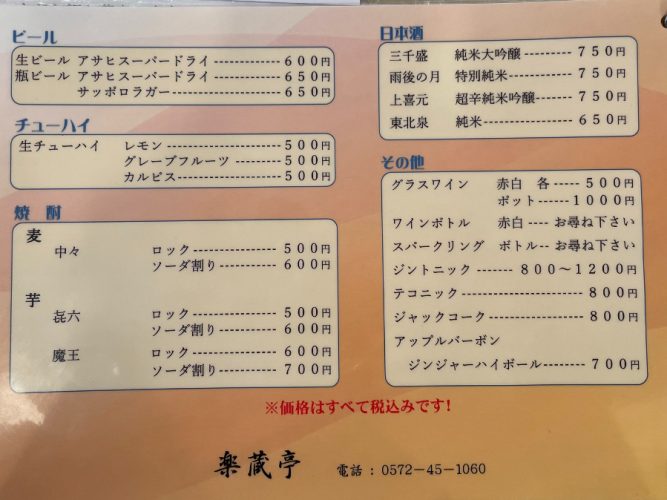 ビール
生ビール アサヒスーパードライ ------------ 600円
瓶ビール アサヒスーパードライ ------------ 650円
サッポロラガー -------------------- 650円
チューハイ
生チューハイ レモン -------------------- 500円
グレープフルーツ -------- 500円
カルピス ------------------ 500円
焼 酎
麦
中々 ロック --------------- 500円
ソーダ割り ----------- 600円
芋
㐂六 ロック --------------- 500円
ソーダ割り ----------- 600円
魔王 ロック --------------- 600円
ソーダ割り ----------- 700円
日本酒
三千盛 純米大吟醸 --------- 750円
雨後の月 特別純米 ----------- 750円
上喜元 超辛純米吟醸 ------- 750円
東北泉 純米 ----------------- 650円
その他
グラスワイン 赤白 各 ----- 500円
ポット ------ 1000円
ワインボトル 赤白 ---- お尋ね下さい
スパークリング ボトル -- お尋ね下さい
ジントニック ------- 800〜1200円
テコニック --------------------- 800円
ジャックコーク ----------------- 800円
アップルバーボン
ジンジャーハイボール -------- 700円
※価格はすべて税込みです!
楽蔵亭 電話 : 0572-45-1060